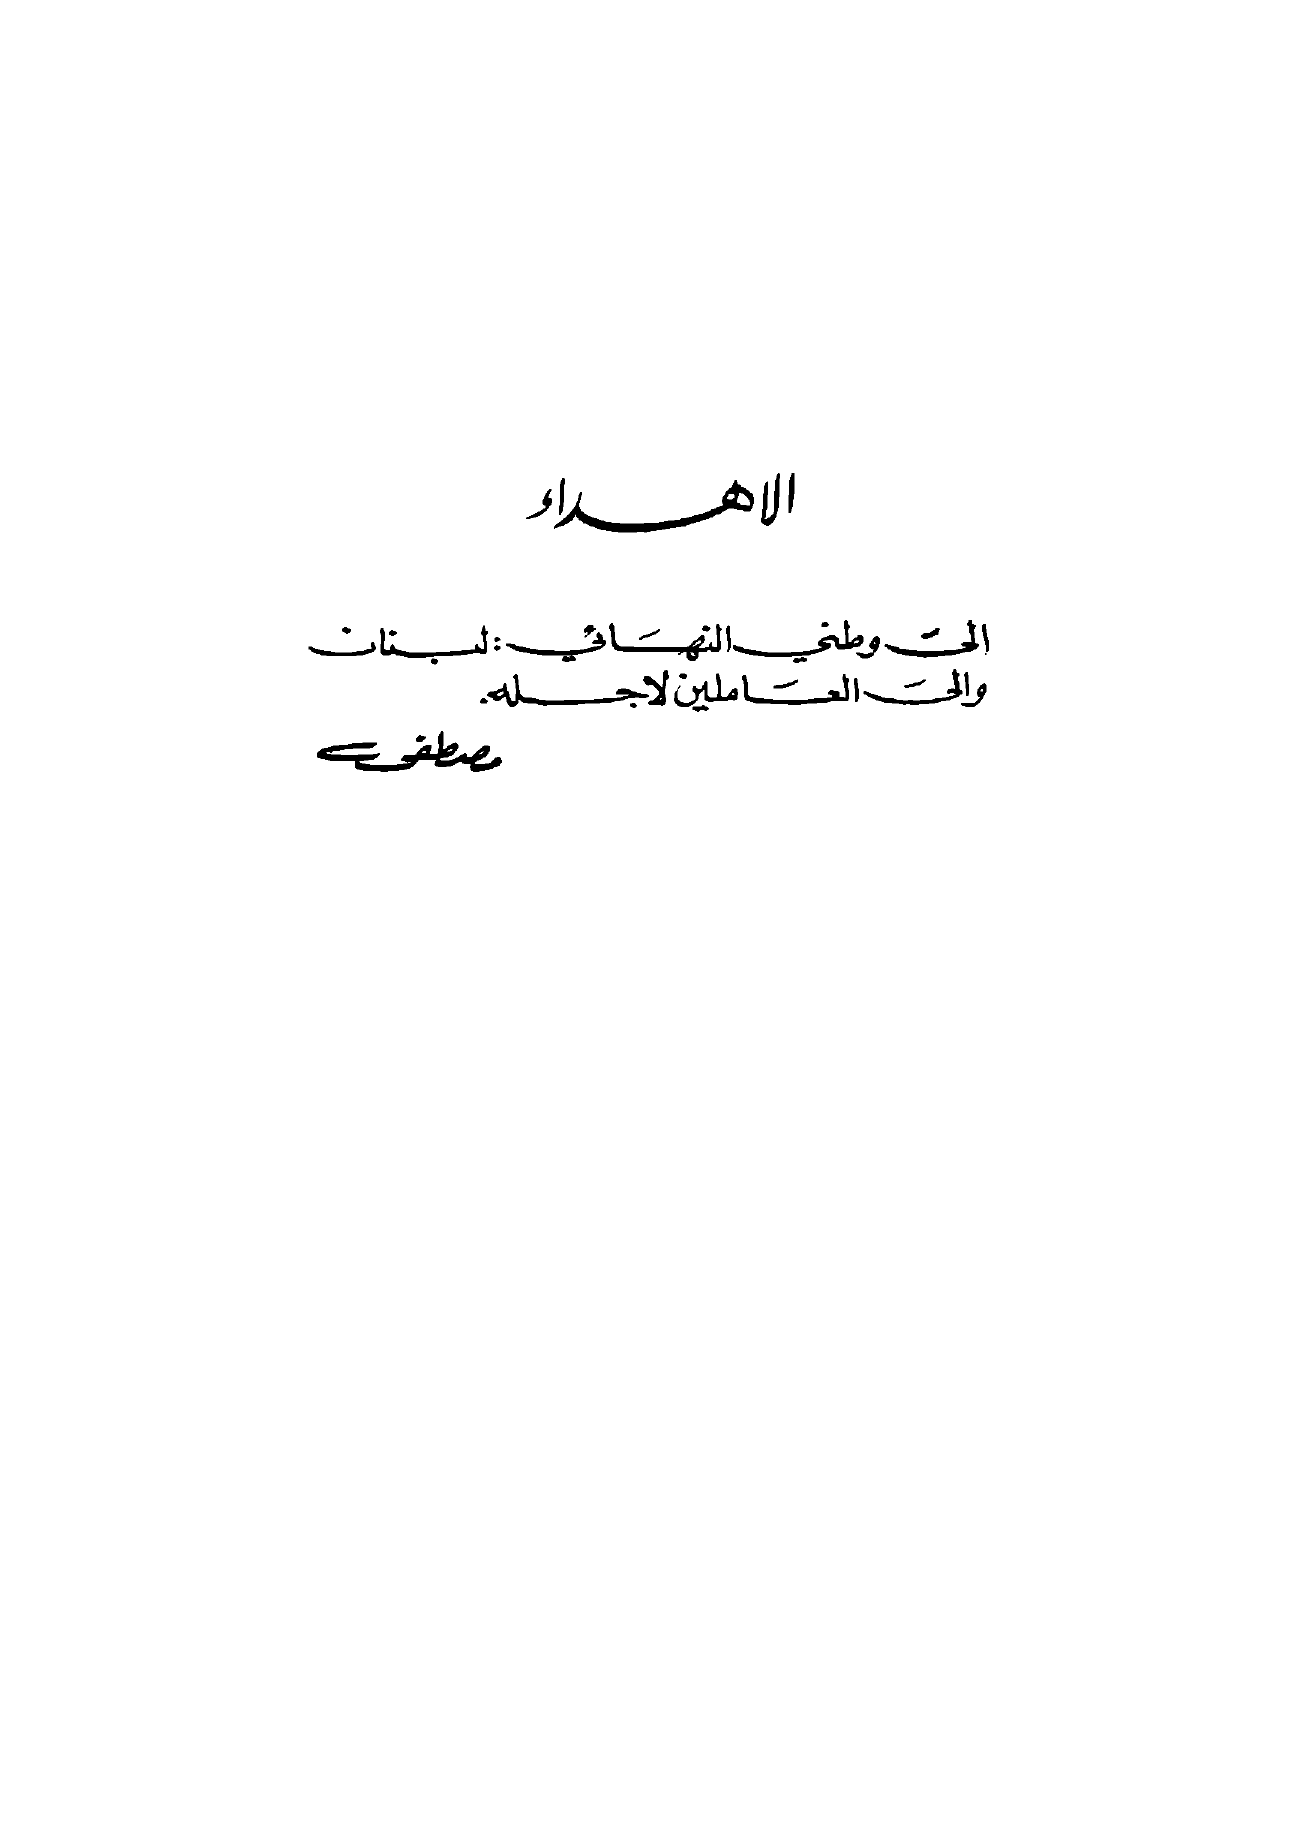 الاهداء
الى وطني النهائي: لبنان
والى العاملين لاجله.
مصطفى